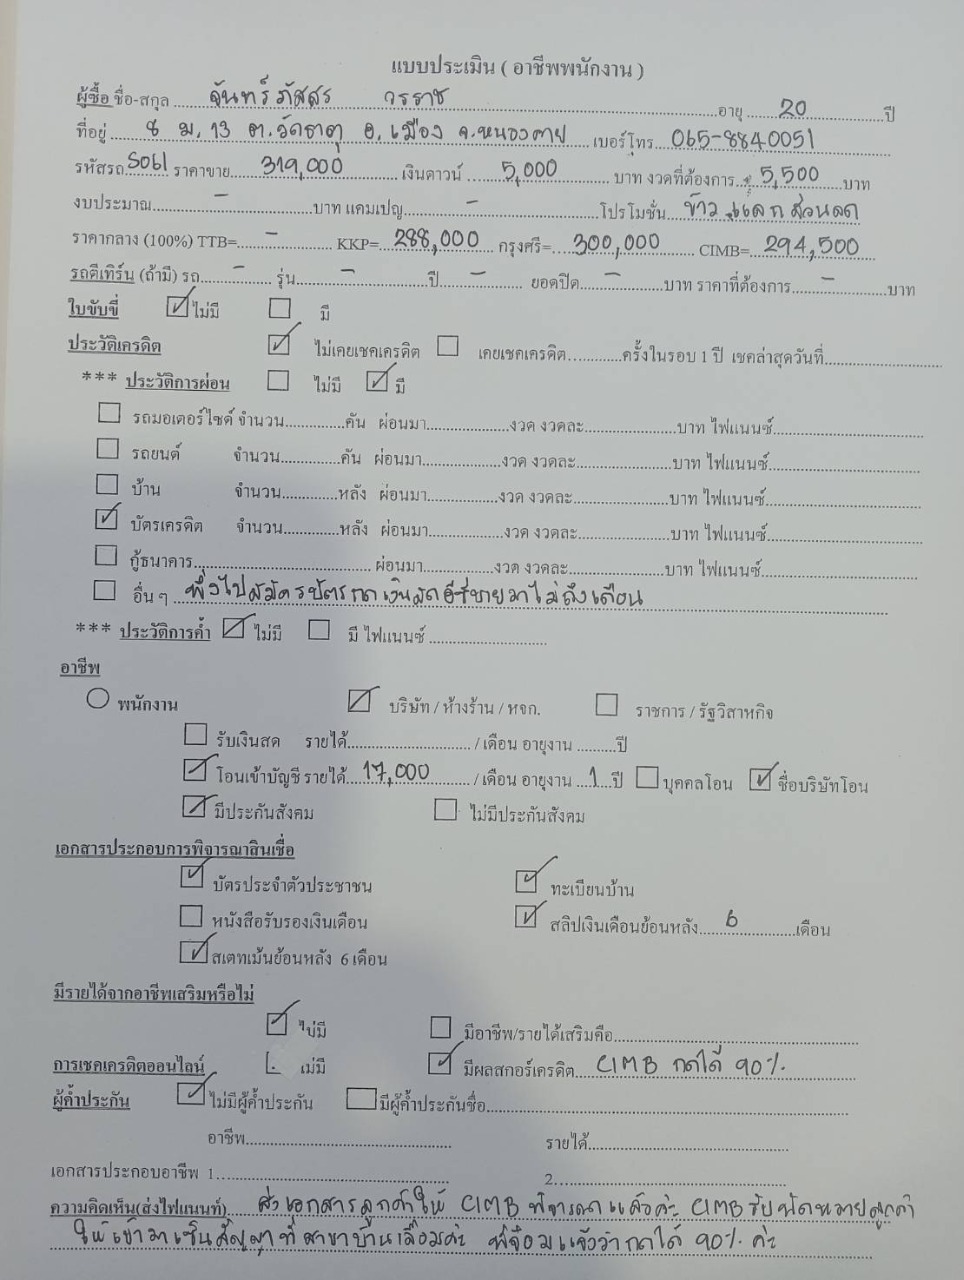 แบบประเมิน ( อาชีพพนักงาน )
ผู้ซื้อ ชื่อ-สกุล จันทร์ภัสสร วรราช อายุ 20 ปี
ที่อยู่ 8 ม.13 ต.วัดธาตุ อ.เมือง จ.หนองคาย เบอร์โทร 065-8840051
รหัสรถ S061 ราคาขาย 319,000 เงินดาวน์ 5,000 บาท งวดที่ต้องการ ± 5,500 บาท
งบประมาณ - บาท แคมเปญ - โปรโมชั่น ข้าว แลกส่วนลด
ราคากลาง (100%) TTB= - KKP= 288,000 กรุงศรี= 300,000 CIMB= 294,500
รถตีเทิร์น (ถ้ามี) รถ - รุ่น - ปี - ยอดปิด - บาท ราคาที่ต้องการ - บาท
ใบขับขี่ ☑ ไม่มี ☐ มี
ประวัติเครดิต ☑ ไม่เคยเชคเครดิต ☐ เคยเชคเครดิต ครั้งในรอบ 1 ปี เชคล่าสุดวันที่
*** ประวัติการผ่อน ☐ ไม่มี ☑ มี
☐ รถมอเตอร์ไซด์ จำนวน คัน ผ่อนมา งวด งวดละ บาท ไฟแนนซ์
☐ รถยนต์ จำนวน คัน ผ่อนมา งวด งวดละ บาท ไฟแนนซ์
☐ บ้าน จำนวน หลัง ผ่อนมา งวด งวดละ บาท ไฟแนนซ์
☑ บัตรเครดิต จำนวน หลัง ผ่อนมา งวด งวดละ บาท ไฟแนนซ์
☐ กู้ธนาคาร ผ่อนมา งวด งวดละ บาท ไฟแนนซ์
☐ อื่น ๆ พึ่งไปสมัครบัตรกดเงินสด มาไม่ถึงเดือน
*** ประวัติการค้ำ ☑ ไม่มี ☐ มี ไฟแนนซ์
อาชีพ
○ พนักงาน ☑ บริษัท / ห้างร้าน / หจก. ☐ ราชการ / รัฐวิสาหกิจ
☐ รับเงินสด รายได้ / เดือน อายุงาน ปี
☑ โอนเข้าบัญชี รายได้ 17,000 / เดือน อายุงาน 1 ปี ☐ บุคคลโอน ☑ ชื่อบริษัทโอน
☑ มีประกันสังคม ☐ ไม่มีประกันสังคม
เอกสารประกอบการพิจารณาสินเชื่อ
☑ บัตรประจำตัวประชาชน ☑ ทะเบียนบ้าน
☐ หนังสือรับรองเงินเดือน ☑ สลิปเงินเดือนย้อนหลัง 6 เดือน
☑ สเตทเม้นย้อนหลัง 6 เดือน
มีรายได้จากอาชีพเสริมหรือไม่
☑ ไม่มี ☐ มีอาชีพ/รายได้เสริมคือ
การเชคเครดิตออนไลน์ ☐ ไม่มี ☑ มีผลสกอร์เครดิต CIMB กดได้ 90%
ผู้ค้ำประกัน ☑ ไม่มีผู้ค้ำประกัน ☐ มีผู้ค้ำประกันชื่อ
อาชีพ รายได้
เอกสารประกอบอาชีพ 1. 2.
ความคิดเห็น(ส่งไฟแนนท์) ส่งเอกสารลูกค้าให้ CIMB แล้วค่ะ CIMB ลูกค้า
ให้เข้ามาเซ็นสัญญาที่สาขาบ้านเลื่อมค่ะ แจ้งว่ากดได้ 90% ค่ะ